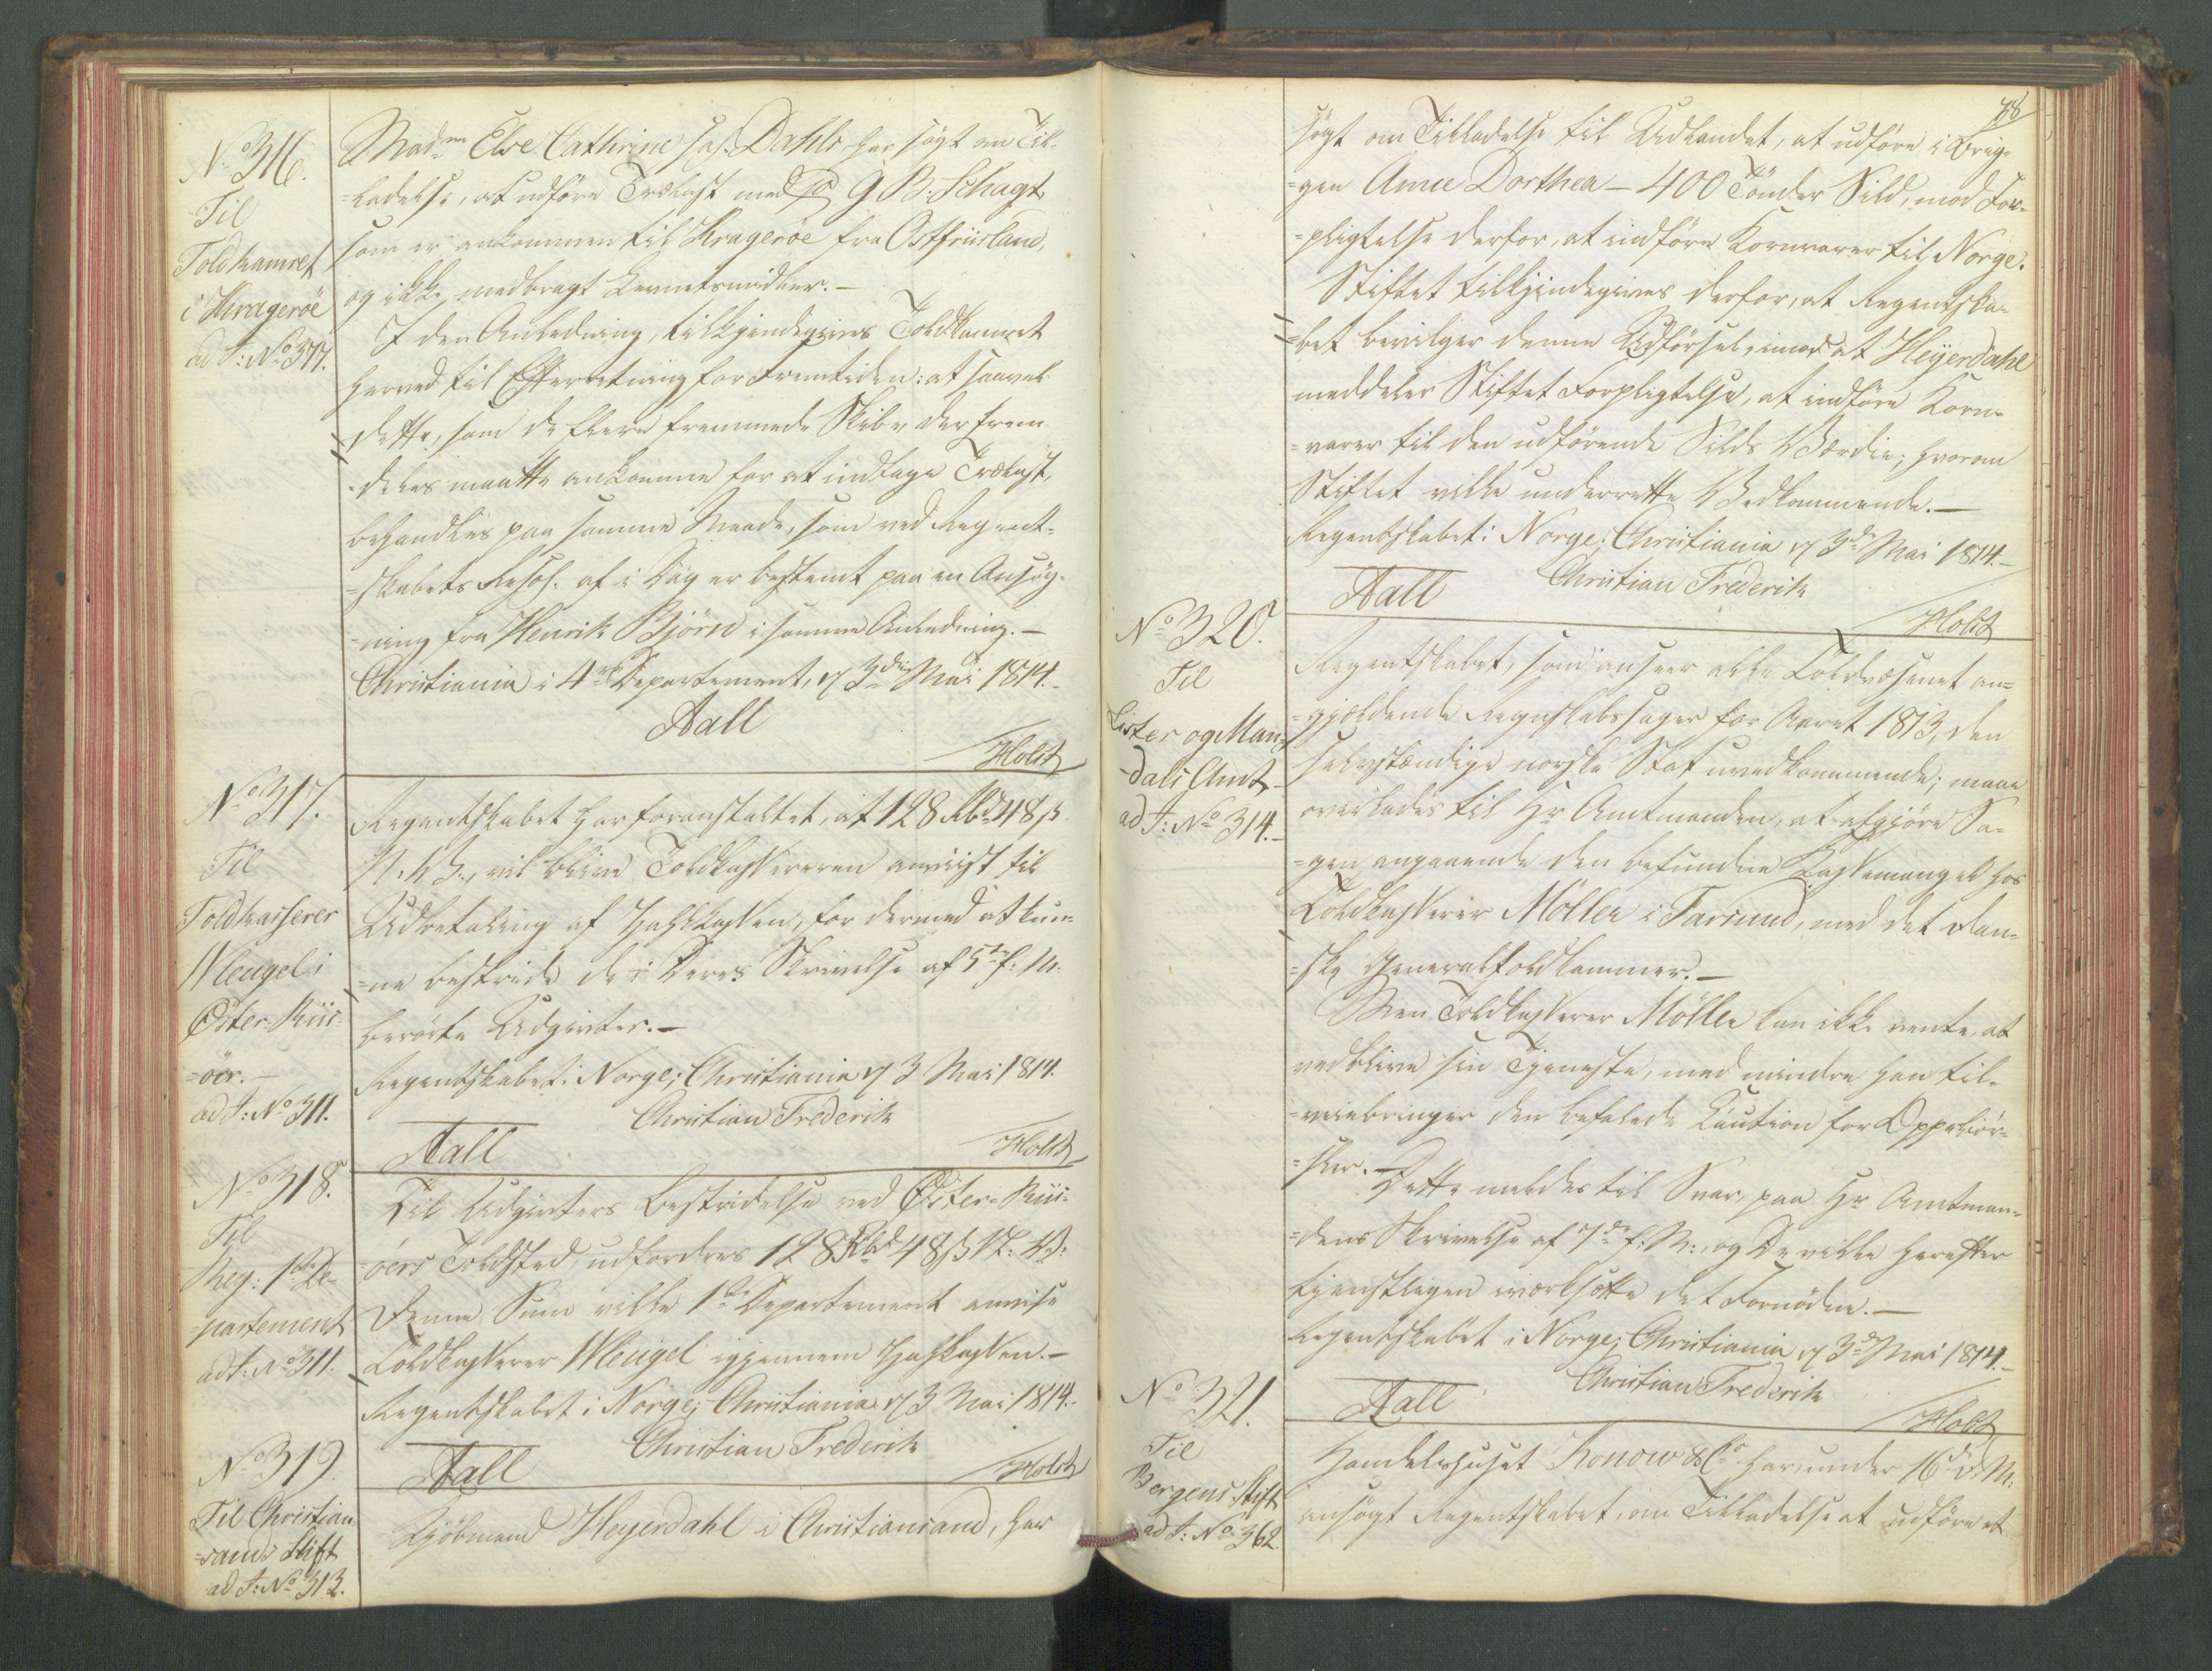 No 316.
Til
Toldkamret
i Kragerøe
ad J: No 377.
Madme Else Cathrine sal. Dahls har søgt om Til-
-ladelse, at udføre Trælast med G B. Schagt
som er ankommen til Kragerøe fra Ostfriisland,
og ikke medbragt Levnetsmidler. —
I den Anledning, tilkjendegives Toldkamret
herved til Efterretning for Fremtiden: at saavel
dette, som de flere fremmede Skibe, der frem-
-deles maatte ankomme for at indtage Trælast,
behandles paa samme Maade, som ved Regent-
-skabets Resol: af i Dag er bestemt paa en Ansøg-
-ning fra Henrik Bjørn i samme Anledning. —
Christiania i 4de Departement, d 3die Mai 1814. —
Aall
Holst
No 317.
Til
Toldkasserer
Weugel i
Øster-Riis-
=øer. —
ad J: No 311.
Regentskabet har foranstaltet, at 128 Rbd 48 s.
N. V., vil blive Toldkasserern anviist til
Udbetaling af Zahlkassen, for dermed at kun-
-ne bestride de i Deres Skrivelse af 5te f: M:
berørte Udgivter. —
Regentskabet i Norge; Christiania d 3 Mai 1814.
Christian Frederik
Aall
Holst
No 318.
Til
Reg: 1ste De-
-partement
ad J: No 311.
Til Udgivters Bestridelse ved Øster-Riis-
-øers Toldsted, udfordres 128 Rbd 48 s N: V:
Denne Sum ville 1ste Departement anvise
Toldkasserer Weugel igjennem Zahlkassen. —
Regentskabet i Norge; Christiania d 3 Mai 1814. —
Christian Frederik
Aall
Holst
No 319.
Til Christian-
-sands Stift
ad J: No 313.
Kjøbmand Heyerdahl i Christiansand, har
78
søgt om Tilladelse til Udlandet, at udføre i Brig-
-gen Anne Dorthea — 400 Tønder Sild, mod For-
-pligtelse derfor, at indføre Kornvarer til Norge.
Stiftet tilkjendegives derfor, at Regentska-
-bet bevilger denne Udførsel, imod at Heyerdahl
meddeler Stiftet Forpligtelse, at indføre Korn-
-varer til den udførende Silds Værdie; hvorom
Stiftet ville underrette Vedkommende. —
Regentskabet i Norge; Christiania d 3de Mai 1814. —
Christian Frederik
Aall
Holst
No 320.
Til
Lister og Man-
-dals Amt. —
ad J: No 314. —
Regentskabet, som anseer alle Toldvæsenet an-
-gjældende Regnskabssager for Aaret 1813, den
selvstændige norske Stat uvedkommende; maae
overlades til Hr Amtmanden, at afgjøre Sa-
-gen angaaende den befundne Kassemangel hos
Toldkasserer Möller i Farsund, med det dan-
-ske Generaltoldkammer. —
Men Toldkasserer Möller kan ikke vente, at
vedblive sin Tjeneste, med mindre han til-
-veiebringer den befalede Caution for Oppebør-
-sler. —
Dette meldes til Svar, paa Hr Amtman-
-dens Skrivelse af 7de f: M:, og De ville herefter
tjenstligen iværksætte det Fornødne. —
Regentskabet i Norge; Christiania d 3de Mai 1814. —
Christian Frederik
Aall
Holst
No 321.
Til
Bergens Stift
ad J: No 362.
Handelshuset Konow & Co har, under 16 d: M:
ansøgt Regentskabet, om Tilladelse at udføre et